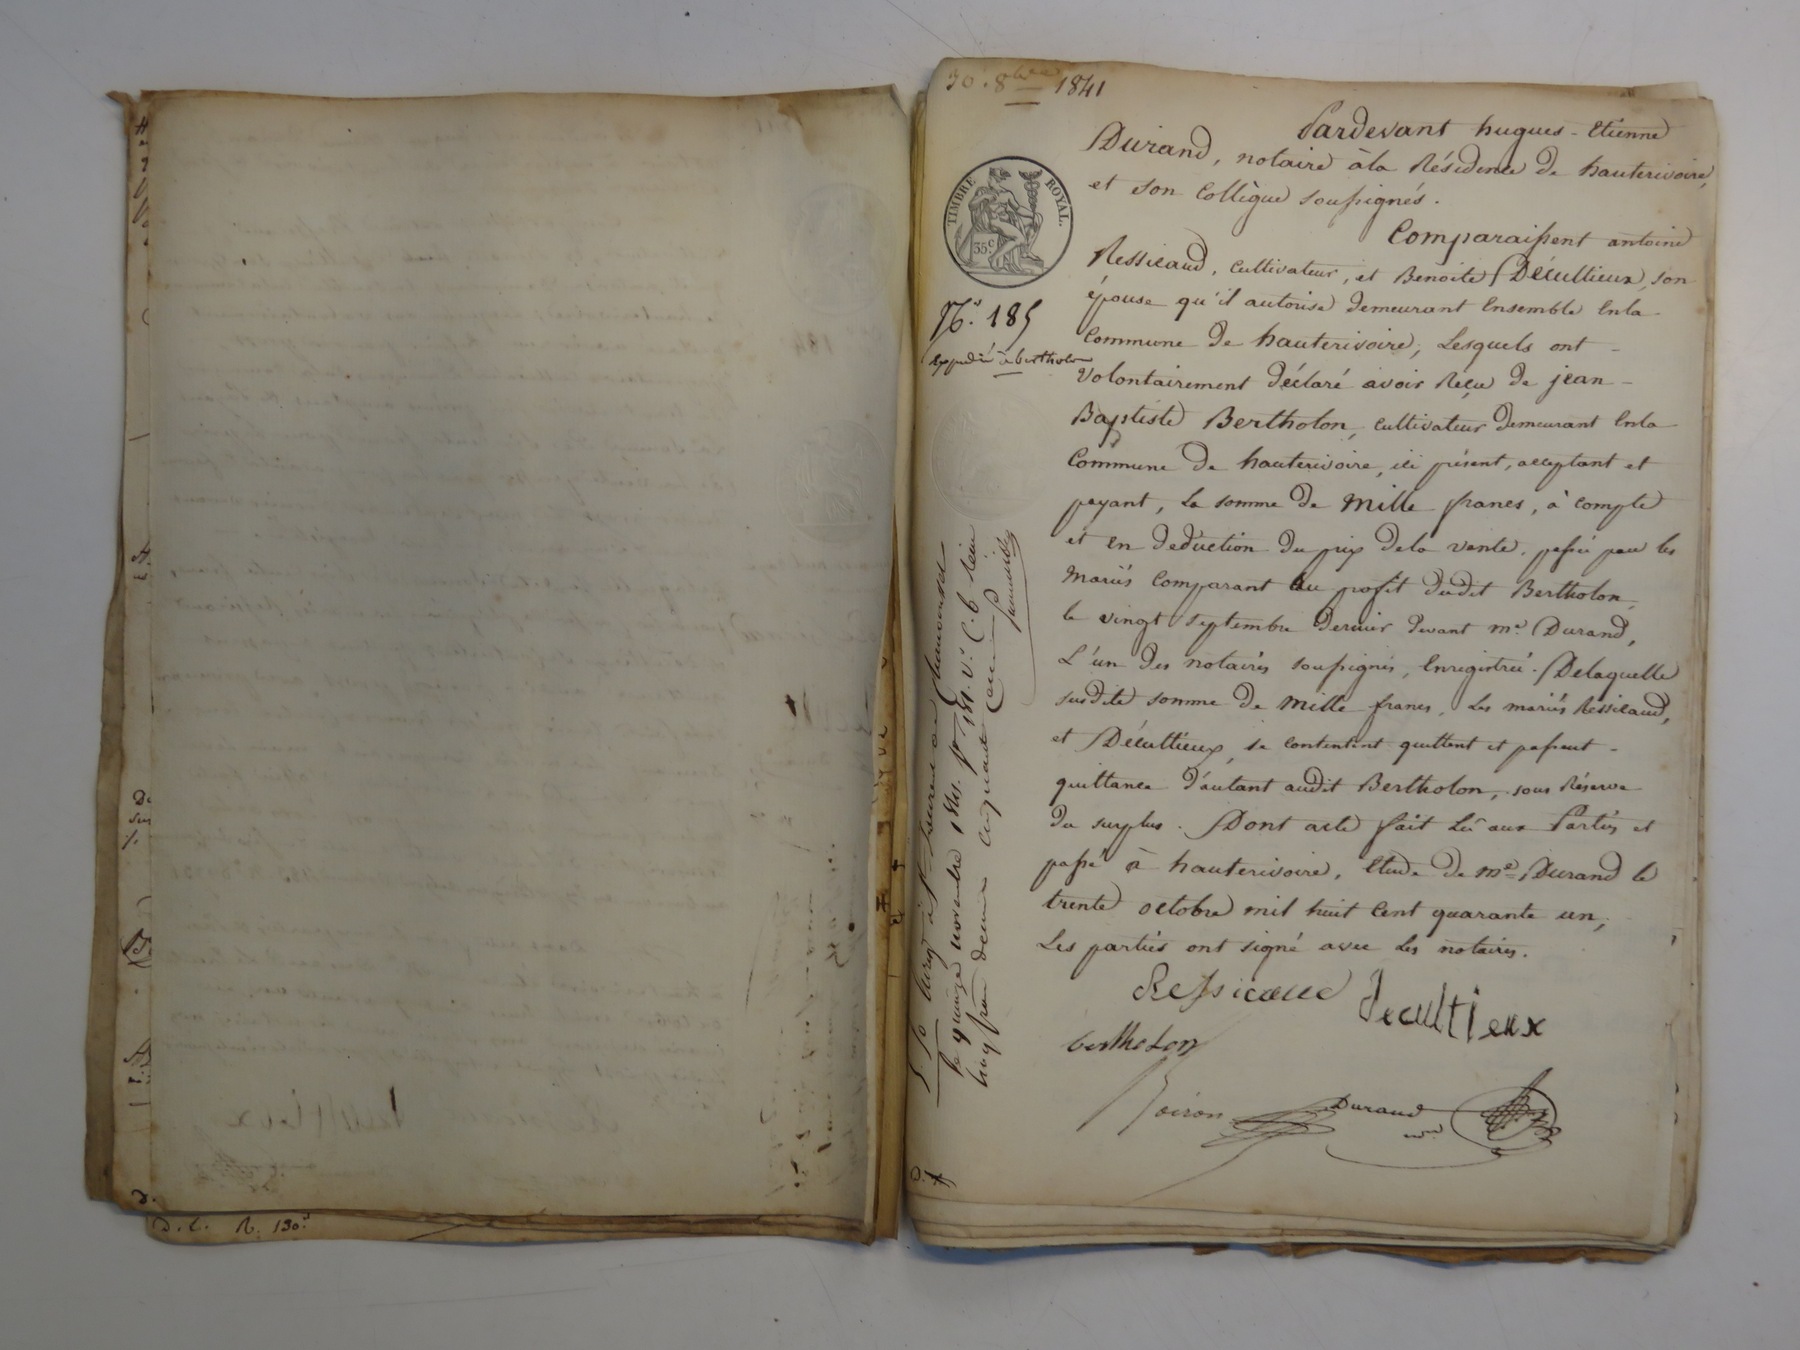 30. 8bre 1841
Pardevant hugues-Etienne
Durand, notaire à la Résidence de hauterivoire,
et son Collègue soussignés.
Comparaissent antoine
Ressicaud, Cultivateur, et Benoite Décultieux, son
épouse qu'il autorise demeurant Ensemble Enla
Commune de hauterivoire, Lesquels ont
Volontairement déclaré avoir Reçu de jean-
Baptiste Bertholon, cultivateur demeurant Enla
Commune de hauterivoire, ici présent, acceptant et
payant, La somme de Mille francs, à compte
et en deduction du prix dela vente, passée par les
Mariés Comparant au profit dudit Bertholon,
le vingt septembre dernier devant me. Durand,
L'un des notaires soussignés, Enregistrée. Delaquelle
susdite somme de Mille francs, Les mariés Ressicaud,
et Décultieux, se contentent quittent et passent-
quittance d'autant audit Bertholon, sous Réserve
du surplus. Dont acte fait Lû aux Parties et
passé à hauterivoire, Etude de me. Durand le
trente octobre mil huit Cent quarante un,
Les parties ont signé avec Les notaires.
Ressicaud
Decultieux
bertholon
Boiron
Durand
nre
TIMBRE ROYAL.
35c
No. 185
Expédié à bertholon
le quinze novembre 1841. fo 181. Vo. C. 6 Reçu
cinq francs decime cinquante Cent
d. C. R. 130.